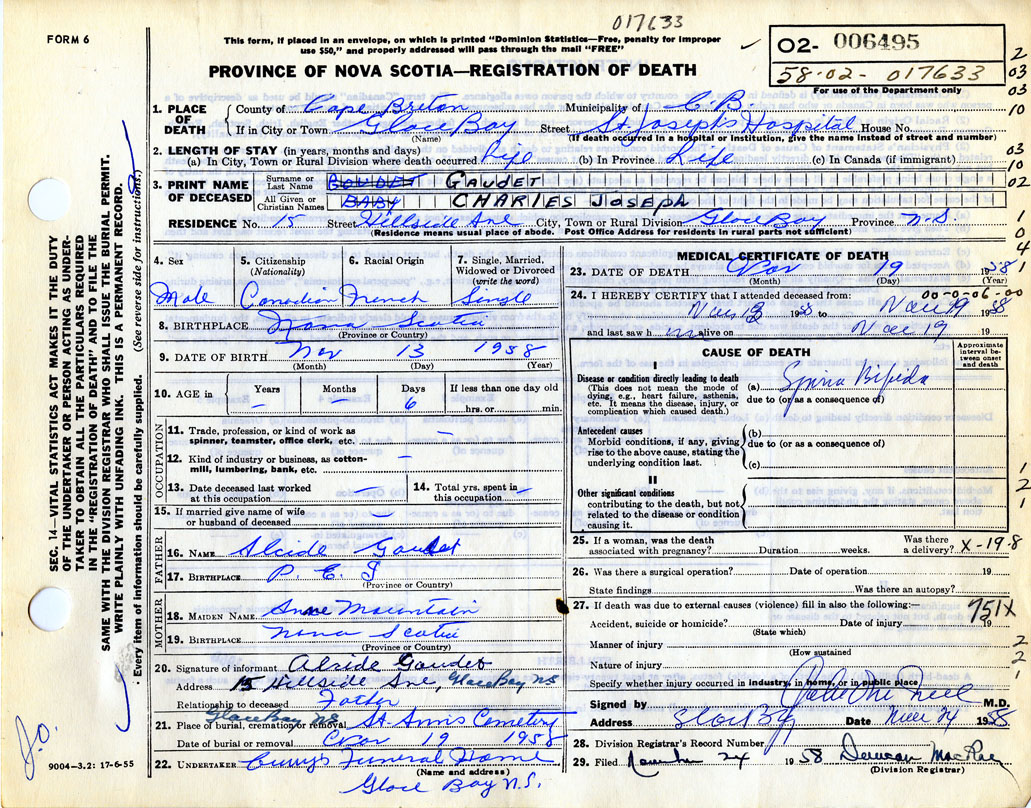 017633
FORM 6
This form, if placed in an envelope, on which is printed "Dominion Statistics—Free, penalty for improper
use $50," and properly addressed will pass through the mail "FREE"
02- 006495
58-02-017633
For use of the Department only
PROVINCE OF NOVA SCOTIA—REGISTRATION OF DEATH
1. PLACE OF DEATH
County of Cape Breton Municipality of C.B.
If in City or Town Glace Bay Street St Joseph's Hospital House No.
(Name) (If death occurred in a hospital or institution, give the name instead of street and number)
2. LENGTH OF STAY (in years, months and days)
(a) In City, Town or Rural Division where death occurred Life (b) In Province Life (c) In Canada (if immigrant)
3. PRINT NAME OF DECEASED
Surname or Last Name GAUDET
All Given or Christian Names BABY CHARLES JOSEPH
RESIDENCE No. 15 Street Hillside Ave City, Town or Rural Division Glace Bay Province N.S.
(Residence means usual place of abode. Post Office Address for residents in rural parts not sufficient)
4. Sex
Male
5. Citizenship (Nationality)
Canadian
6. Racial Origin
French
7. Single, Married, Widowed or Divorced (write the word)
Single
8. BIRTHPLACE Nova Scotia
(Province or Country)
9. DATE OF BIRTH Nov 13 1958
(Month) (Day) (Year)
10. AGE in Years — Months — Days 6 If less than one day old hrs. or min.
OCCUPATION
11. Trade, profession, or kind of work as spinner, teamster, office clerk, etc. —
12. Kind of industry or business, as cotton-mill, lumbering, bank, etc. —
13. Date deceased last worked at this occupation —
14. Total yrs. spent in this occupation —
15. If married give name of wife or husband of deceased —
FATHER
16. NAME Alcide Gaudet
17. BIRTHPLACE P. E. I
(Province or Country)
MOTHER
18. MAIDEN NAME Anne Mountain
19. BIRTHPLACE Nova Scotia
(Province or Country)
20. Signature of informant Alcide Gaudet
Address 15 Hillside Ave, Glace Bay NS
Relationship to deceased Father
Glace Bay NS
21. Place of burial, cremation or removal St Anns Cemetery
Date of burial or removal Nov 19 1958
22. UNDERTAKER Curry's Funeral Home
(Name and address)
Glace Bay N.S.
MEDICAL CERTIFICATE OF DEATH
23. DATE OF DEATH Nov 19 1958
(Month) (Day) (Year)
24. I HEREBY CERTIFY that I attended deceased from: 00-0-06-00
Nov 13 1958 to Nov 19 1958
and last saw h im alive on Nov 19 19
CAUSE OF DEATH
Approximate interval between onset and death
I
Disease or condition directly leading to death
(This does not mean the mode of dying, e.g., heart failure, asthenia, etc. It means the disease, injury, or complication which caused death.)
(a) Spina Bifida
due to (or as a consequence of)
Antecedent causes
Morbid conditions, if any, giving rise to the above cause, stating the underlying condition last.
(b)
due to (or as a consequence of)
(c)
II
Other significant conditions
contributing to the death, but not related to the disease or condition causing it.
25. If a woman, was the death associated with pregnancy? Duration weeks. Was there a delivery? X-19-8
26. Was there a surgical operation? Date of operation 19
State findings Was there an autopsy?
27. If death was due to external causes (violence) fill in also the following:— 751X
Accident, suicide or homicide? Date of injury 19
(State which)
Manner of injury
(How sustained
Nature of injury
Specify whether injury occurred in industry, in home, or in public place.
Signed by M.D.
Address Glace Bay Date Nov 24 1958
28. Division Registrar's Record Number
29. Filed November 24 1958 Duncan MacRae
(Division Registrar)
SEC. 14—VITAL STATISTICS ACT MAKES IT THE DUTY
OF THE UNDERTAKER OR PERSON ACTING AS UNDER-
TAKER TO OBTAIN ALL THE PARTICULARS REQUIRED
IN THE "REGISTRATION OF DEATH" AND TO FILE THE
SAME WITH THE DIVISION REGISTRAR WHO SHALL ISSUE THE BURIAL PERMIT.
WRITE PLAINLY WITH UNFADING INK. THIS IS A PERMANENT RECORD.
Every item of information should be carefully supplied. (See reverse side for instructions.)
J.O.
9004-3.2: 17-6-55
2
03
10
03
10
02
1
0
4
1
1
2
1
2
2
1